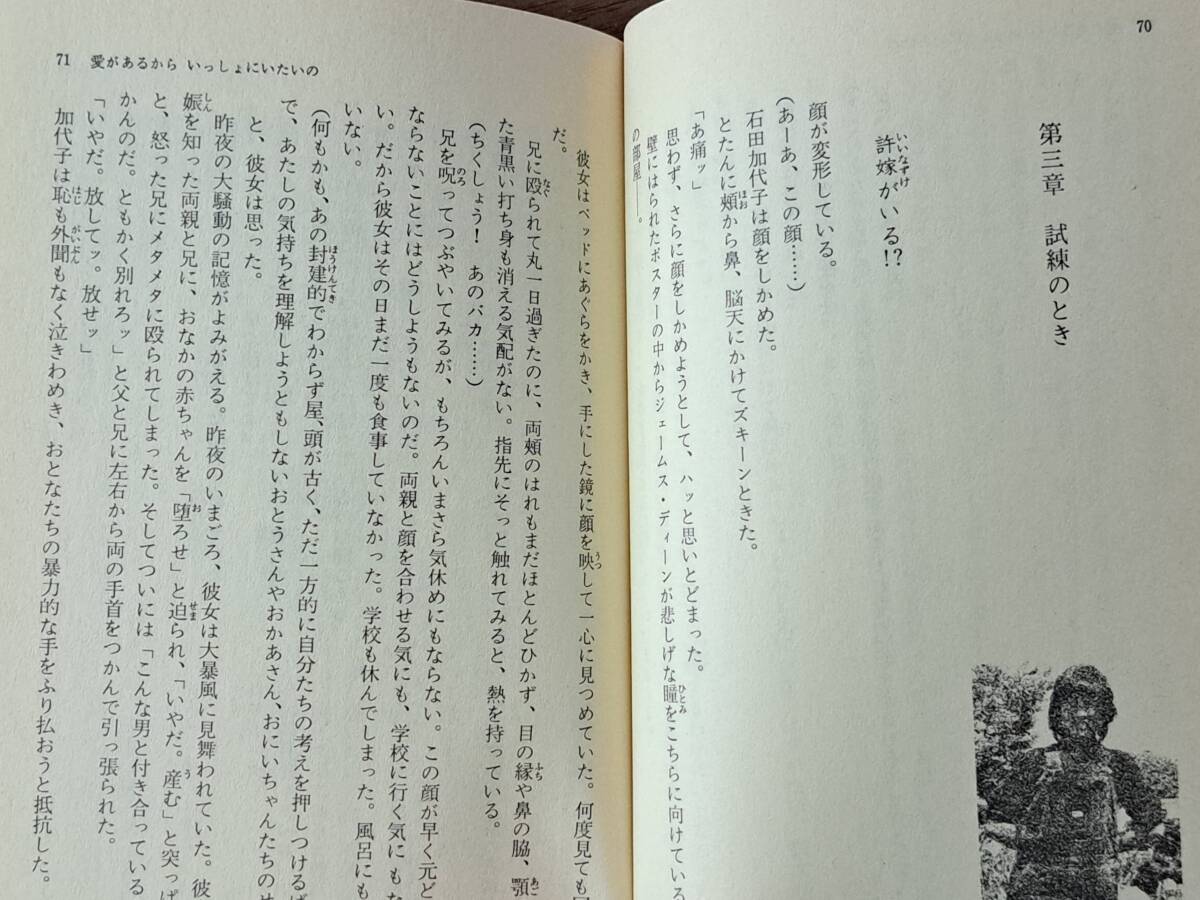 70
第三章　試練のとき
許嫁がいる!?
顔が変形している。
(あーあ、この顔……)
石田加代子は顔をしかめた。
とたんに頬から鼻、脳天にかけてズキーンときた。
「あ痛ッ」
思わず、さらに顔をしかめようとして、ハッと思いとどまった。
壁にはられたポスターの中からジェームス・ディーンが悲しげな瞳をこちらに向けている
の部屋――。
71　愛があるから いっしょにいたいの
彼女はベッドにあぐらをかき、手にした鏡に顔を映して一心に見つめていた。何度見ても
だ。
兄に殴られて丸一日過ぎたのに、両頬のはれもまだほとんどひかず、目の縁や鼻の脇、顎
た青黒い打ち身も消える気配がない。指先にそっと触れてみると、熱を持っている。
(ちくしょう!　あのバカ……)
兄を呪ってつぶやいてみるが、もちろんいまさら気休めにもならない。この顔が早く元ど
ならないことにはどうしようもないのだ。両親と顔を合わせる気にも、学校に行く気にもな
い。だから彼女はその日まだ一度も食事していなかった。学校も休んでしまった。風呂にも
いない。
(何もかも、あの封建的でわからず屋、頭が古く、ただ一方的に自分たちの考えを押しつけるば
で、あたしの気持ちを理解しようともしないおとうさんやおかあさん、おにいちゃんたちのせ
と、彼女は思った。
昨夜の大騒動の記憶がよみがえる。昨夜のいまごろ、彼女は大暴風に見舞われていた。彼
娠を知った両親と兄に、おなかの赤ちゃんを「堕ろせ」と迫られ、「いやだ。産む」と突っぱ
と、怒った兄にメタメタに殴られてしまった。そしてついには「こんな男と付き合っている
かんのだ。ともかく別れろッ」と父と兄に左右から両の手首をつかんで引っ張られた。
「いやだ。放してッ。放せッ」
加代子は恥も外聞もなく泣きわめき、おとなたちの暴力的な手をふり払おうと抵抗した。